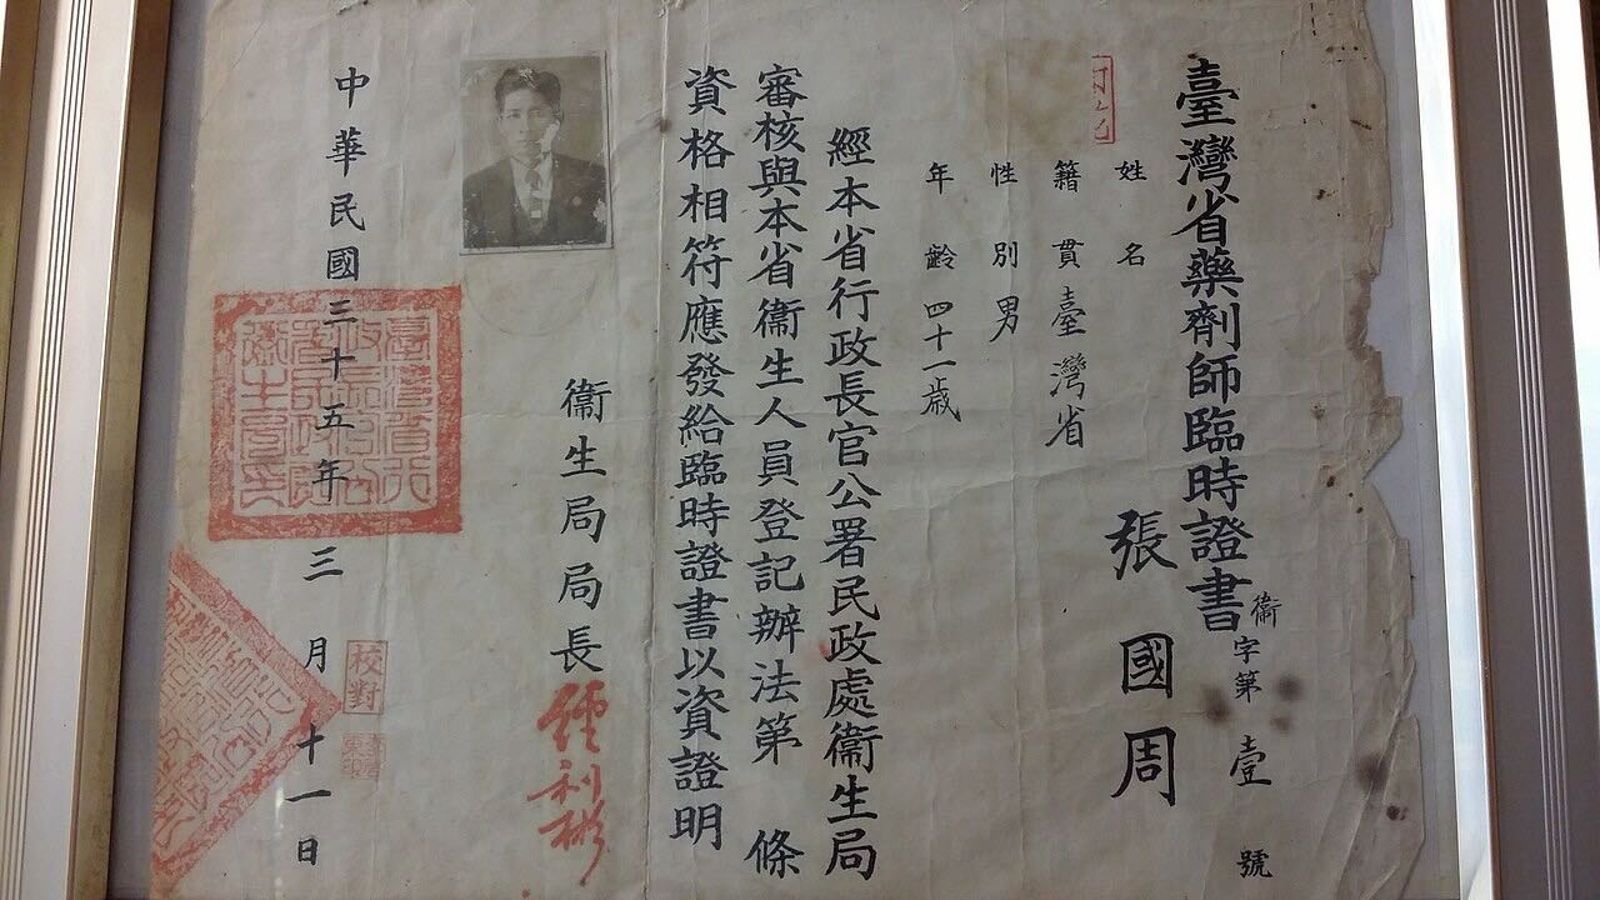 臺灣省藥劑師臨時證書
衞字第壹號
姓名 張國周
籍貫 臺灣省
性別 男
年齡 四十一歲
經本省行政長官公署民政處衞生局
審核與本省衞生人員登記辦法第 條
資格相符應發給臨時證書以資證明
衞生局局長
經利彬
中華民國三十五年三月十一日
校對